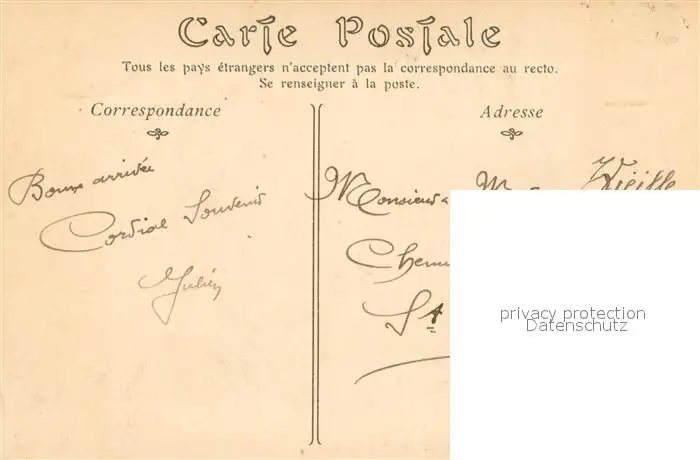 Carte Postale
Tous les pays étrangers n'acceptent pas la correspondance au recto.
Se renseigner à la poste.
Correspondance
Adresse
Bonne arrivée
Cordial Souvenir
Julien
Monsieur
Vieille
St
privacy protection
Datenschutz